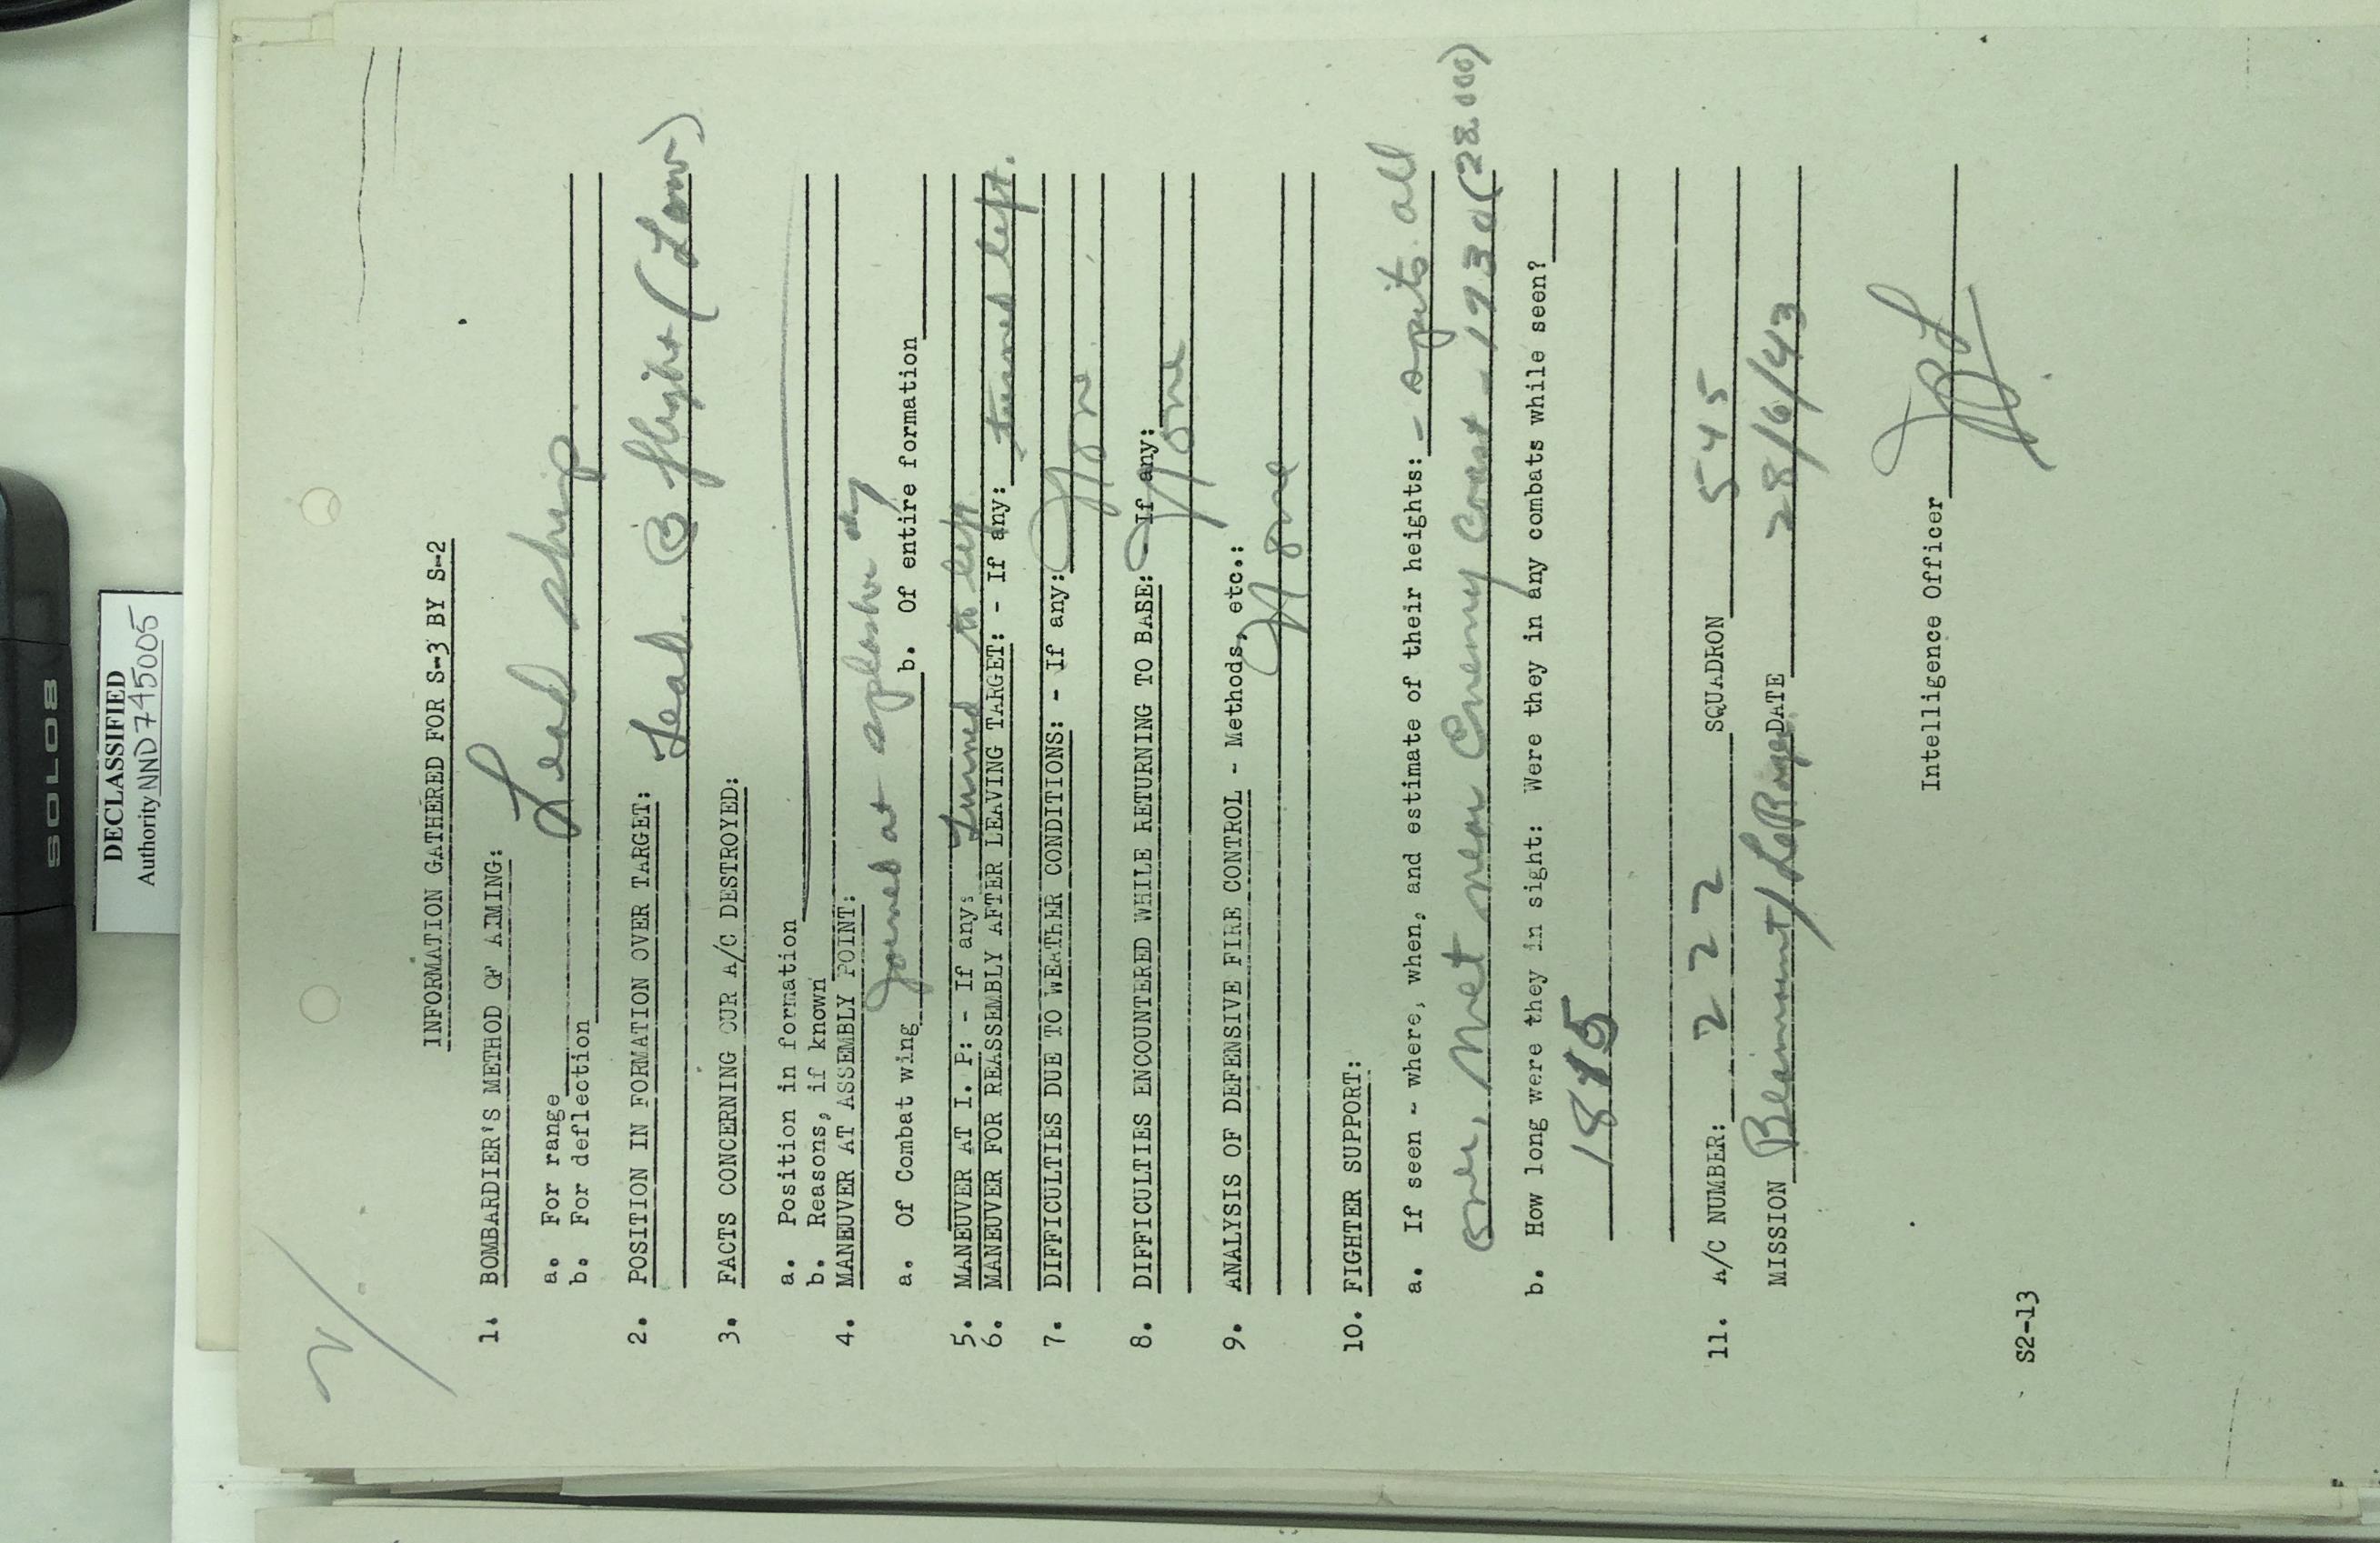 SOLO8
DECLASSIFIED
Authority NND 745005
INFORMATION GATHERED FOR S-3 BY S-2
1. BOMBARDIER'S METHOD OF AIMING:
a. For range Lead ship
b. For deflection
2. POSITION IN FORMATION OVER TARGET: Lead B flight (Low)
3. FACTS CONCERNING OUR A/C DESTROYED:
a. Position in formation
b. Reasons, if known
4. MANEUVER AT ASSEMBLY POINT:
a. Of Combat wing Joined at splasher b. Of entire formation
5. MANEUVER AT I. P: - If any: Turned to left
6. MANEUVER FOR REASSEMBLY AFTER LEAVING TARGET: - If any: turned left.
7. DIFFICULTIES DUE TO WEATHER CONDITIONS: - If any: None
8. DIFFICULTIES ENCOUNTERED WHILE RETURNING TO BABE: - If any: None
9. ANALYSIS OF DEFENSIVE FIRE CONTROL - Methods, etc.:
None
10. FIGHTER SUPPORT:
a. If seen - where, when, and estimate of their heights: - spits all
over, Met near Enemy Coast - 1730 (28.000)
b. How long were they in sight: Were they in any combats while seen?
1815
11. A/C NUMBER: 222 SQUADRON 545
MISSION Beaumont/ DATE 28/6/43
Intelligence Officer
S2-13